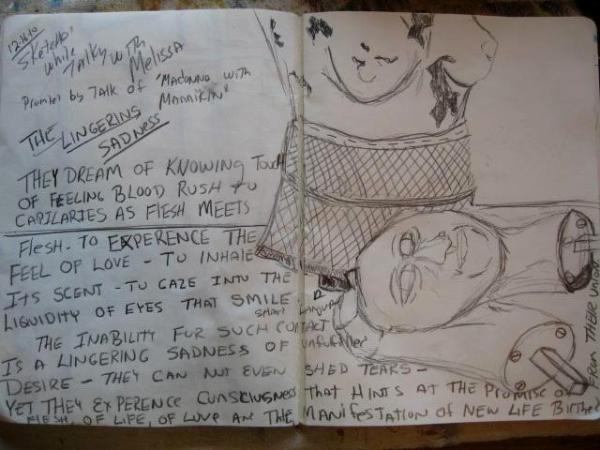 12.16.10
SKetcHo'
while
TAlkiNg WiTh
Melissa
Promted by TAlk of "MADonna with
Mannikin"
THE LINGERING
SADNESS
THEY DREAM OF KNOWING TOUCH
OF FEELING BLOOD RUSH TO
CAPILARIES AS FLESH MEETS
FLesh. TO EXPERIENCE THE
FEEL OF LOVE - TO INHALE
ITS SCENT - TO GAZE INTO THE
LIQUIDITY OF EYES THAT SMILE.
THE INABILITY FOR SUCH CONTACT
IS A LINGERING SADNESS OF unfulfilled
DESIRE - THEY CAN NOT EVEN SHED TEARS -
YET THEY EXPERENCE CONSCIUSNESS THAT HINTS AT THE PROMISE OF
FLESH, OF LIFE, OF LOVE AN THE MANIFESTATION OF NEW LIFE BIRTHED
FROM THEIR UNION